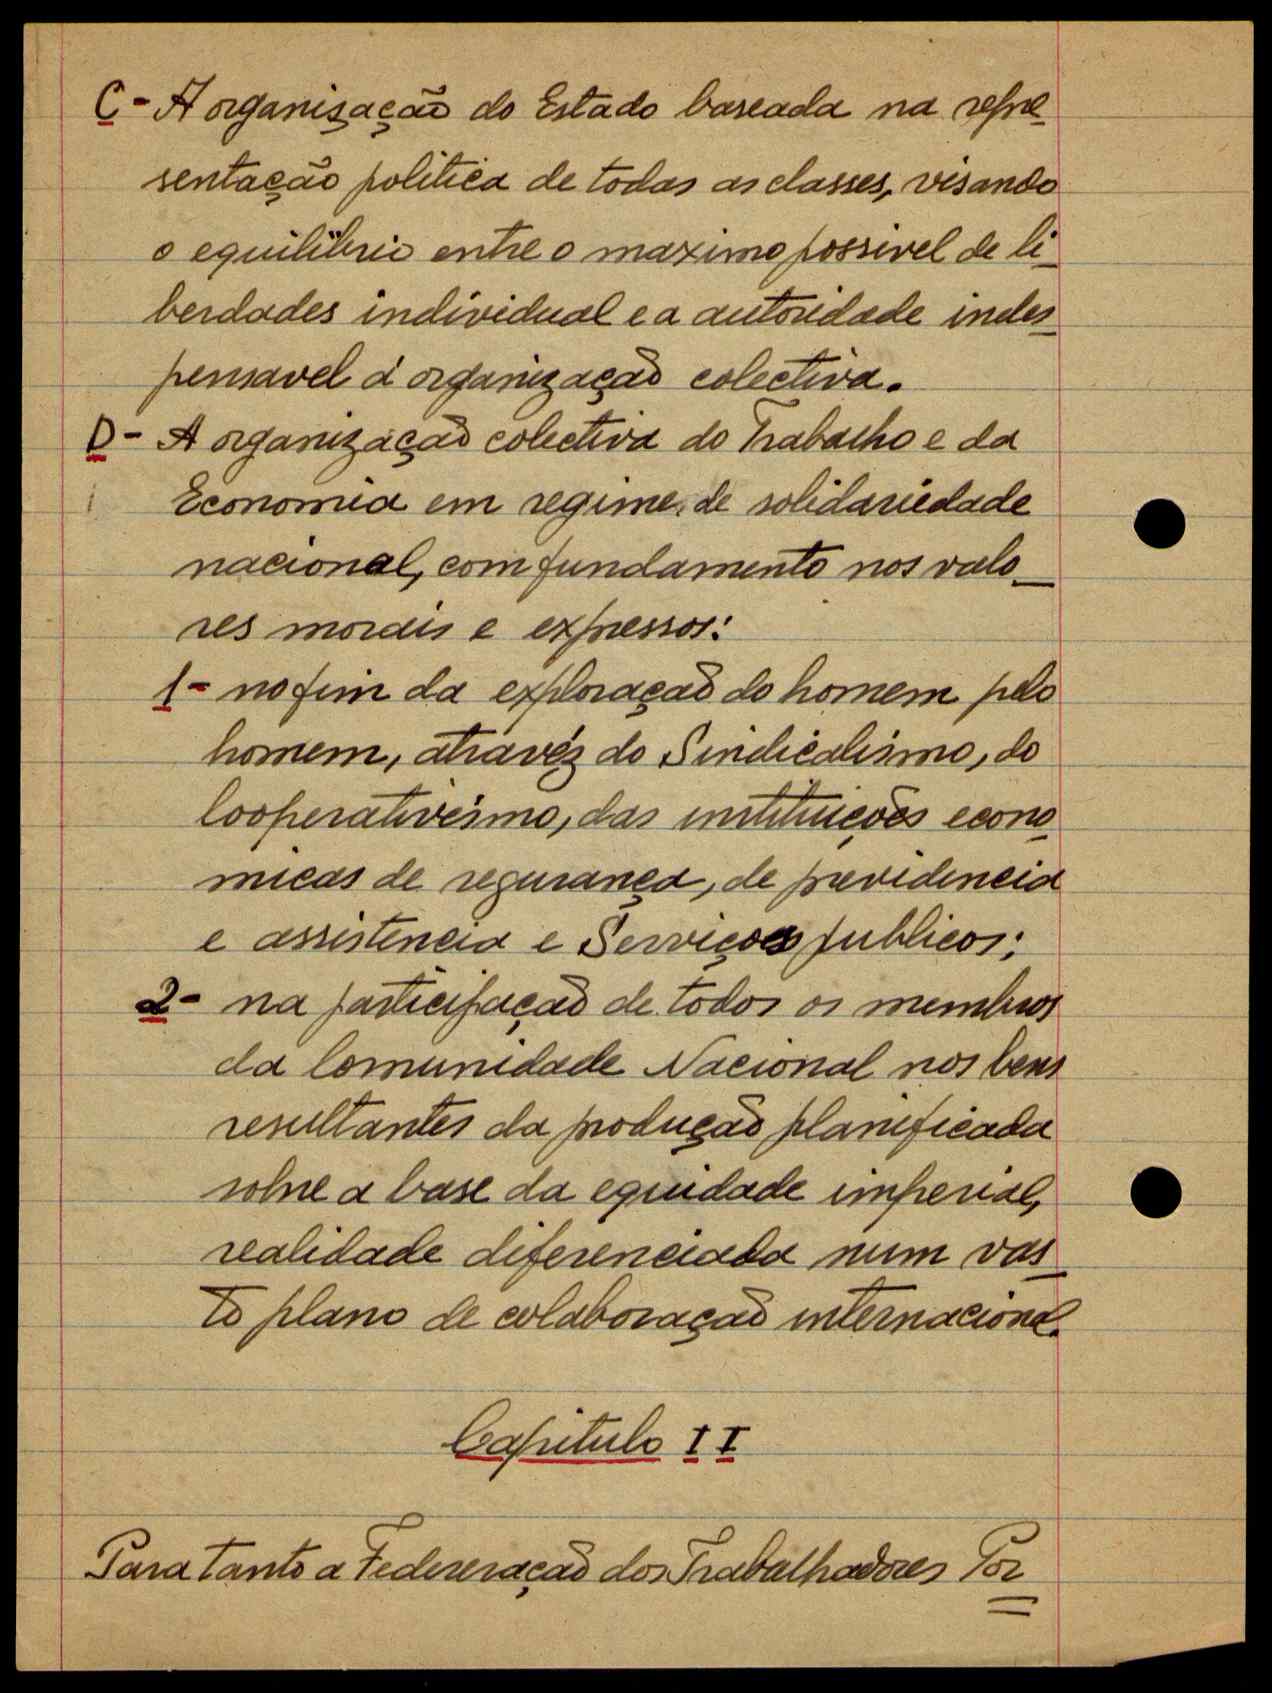 C - A organisação do Estado baseada na repre-
sentação politica de todas as classes, visando
o equilíbrio entre o maximo possivel de li-
berdades individual e a autoridade indes-
pensavel á organização colectiva.
D - A organização colectiva do Trabalho e da
Economia em regime de solidariedade
nacional, com fundamento nos valo-
res morais e expressos:
1 - no fim da exploração do homem pelo
homem, atravéz do Sindicalismo, do
Cooperativismo, das instituições econo-
micas de segurança, de previdencia
e assistencia e Serviços publicos;
2 - na participação de todos os membros
da Comunidade Nacional nos bens
resultantes da produção planificada
sobre a base da equidade imperial,
realidade diferenciada num vas-
to plano de colaboração internacional.
Capitulo II
Para tanto a Federeração dos Trabalhadores Por